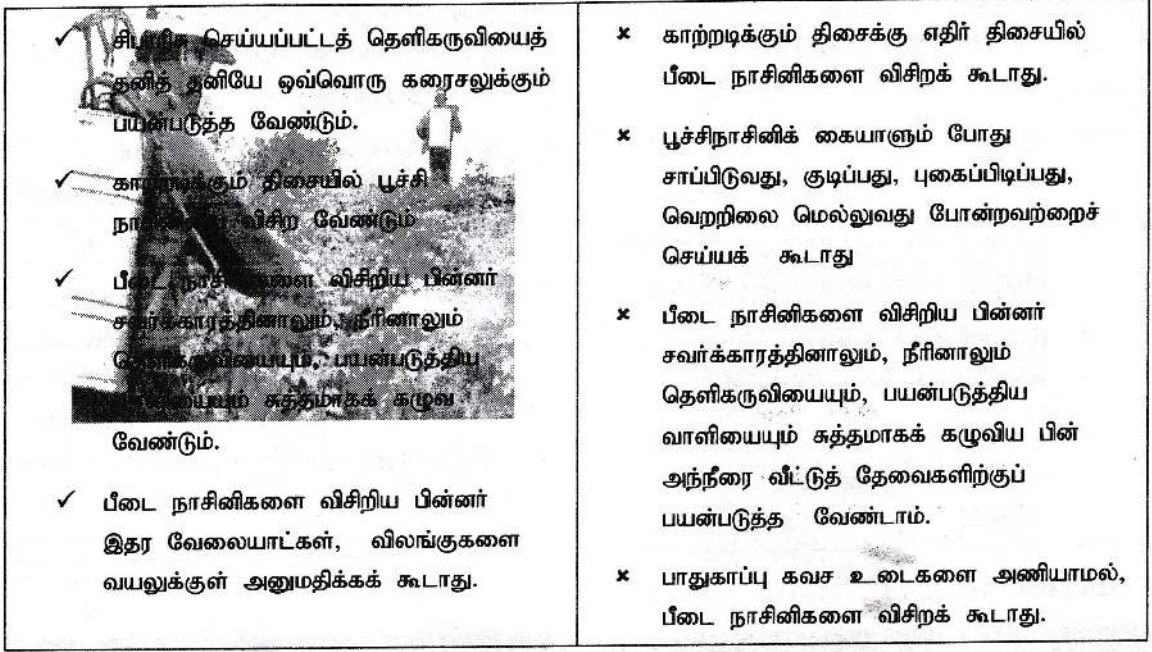 ✓ சிபாரிசு செய்யப்பட்டத் தெளிகருவியைத்
தனித் தனியே ஒவ்வொரு கரைசலுக்கும்
பயன்படுத்த வேண்டும்.
✓ காற்றடிக்கும் திசையில் பூச்சி
விசிற வேண்டும்
✓ பீடை நாசினிகளை விசிறிய பின்னர்
சவர்க்காரத்தினாலும், நீரினாலும்
தெளிகருவியையும், பயன்படுத்திய
சுத்தமாகக் கழுவ
வேண்டும்.
✓ பீடை நாசினிகளை விசிறிய பின்னர்
இதர வேலையாட்கள், விலங்குகளை
வயலுக்குள் அனுமதிக்கக் கூடாது.
× காற்றடிக்கும் திசைக்கு எதிர் திசையில்
பீடை நாசினிகளை விசிறக் கூடாது.
× பூச்சிநாசினிக் கையாளும் போது
சாப்பிடுவது, குடிப்பது, புகைப்பிடிப்பது,
வெறறிலை மெல்லுவது போன்றவற்றைச்
செய்யக் கூடாது
× பீடை நாசினிகளை விசிறிய பின்னர்
சவர்க்காரத்தினாலும், நீரினாலும்
தெளிகருவியையும், பயன்படுத்திய
வாளியையும் சுத்தமாகக் கழுவிய பின்
அந்நீரை வீட்டுத் தேவைகளிற்குப்
பயன்படுத்த வேண்டாம்.
× பாதுகாப்பு கவச உடைகளை அணியாமல்,
பீடை நாசினிகளை விசிறக் கூடாது.